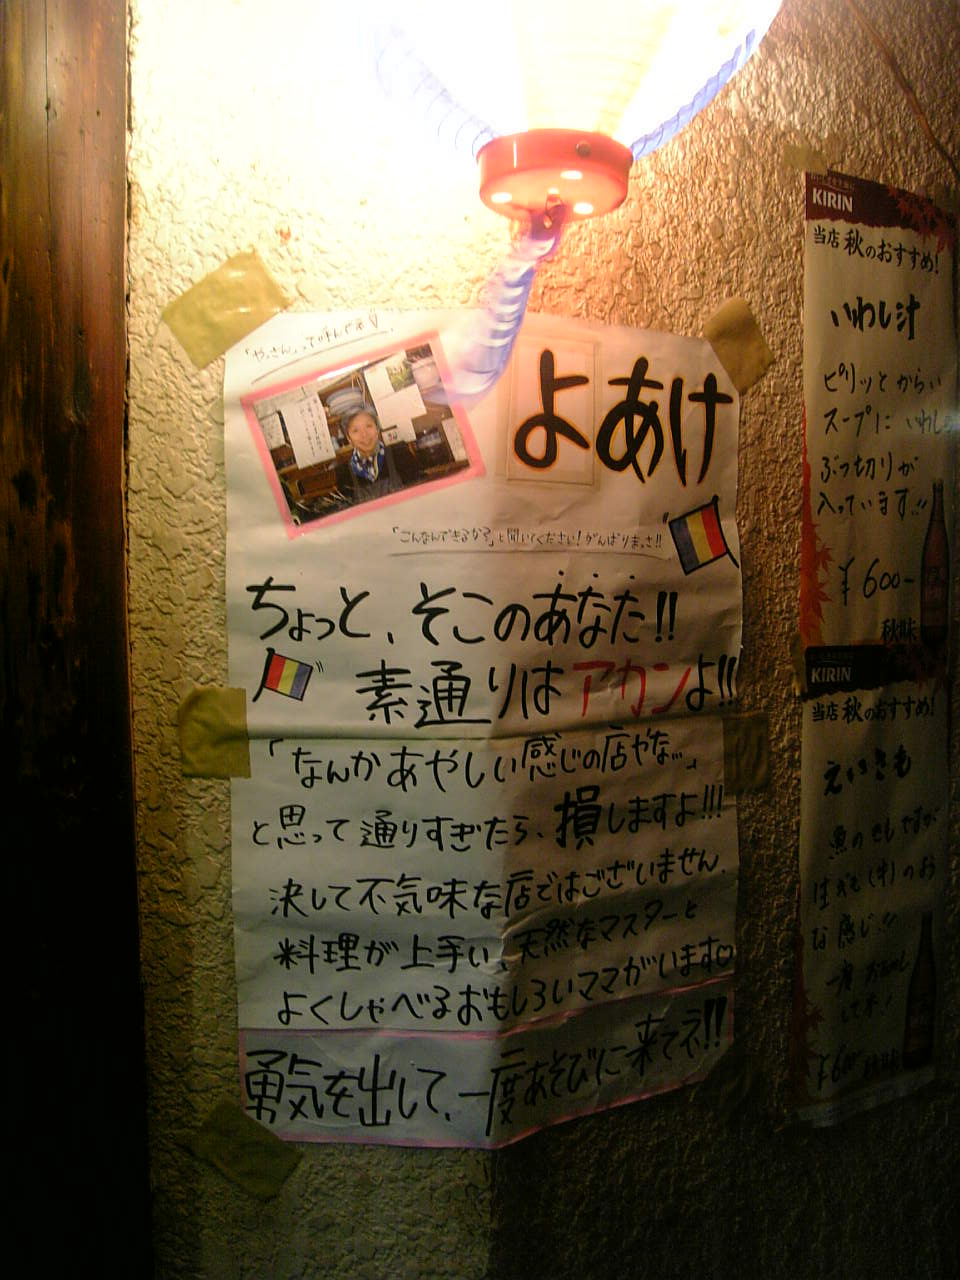 「やっさん」って呼んでネ♡
よあけ
「こんなんできるか?」と聞いてください!がんばりまっさ!!
ちょっと、そこのあなた!!
素通りはアカンよ!!
「なんかあやしい感じの店やな…」
と思って通りすぎたら、損しますよ!!!
決して不気味な店ではございません。
料理が上手い、天然なマスターと
よくしゃべるおもしろいママがいます♡
勇気を出して、一度あそびに来てネ!!
KIRIN
当店 秋のおすすめ!
いわし汁
ピリッとからい
スープに いわし
ぶつ切りが
入っています!!
¥600-
秋味
KIRIN
当店 秋のおすすめ!
えいきも
魚のさしですが
生ぎも(牛)のお
な感じ!!
一度 お試し
して下!
¥600